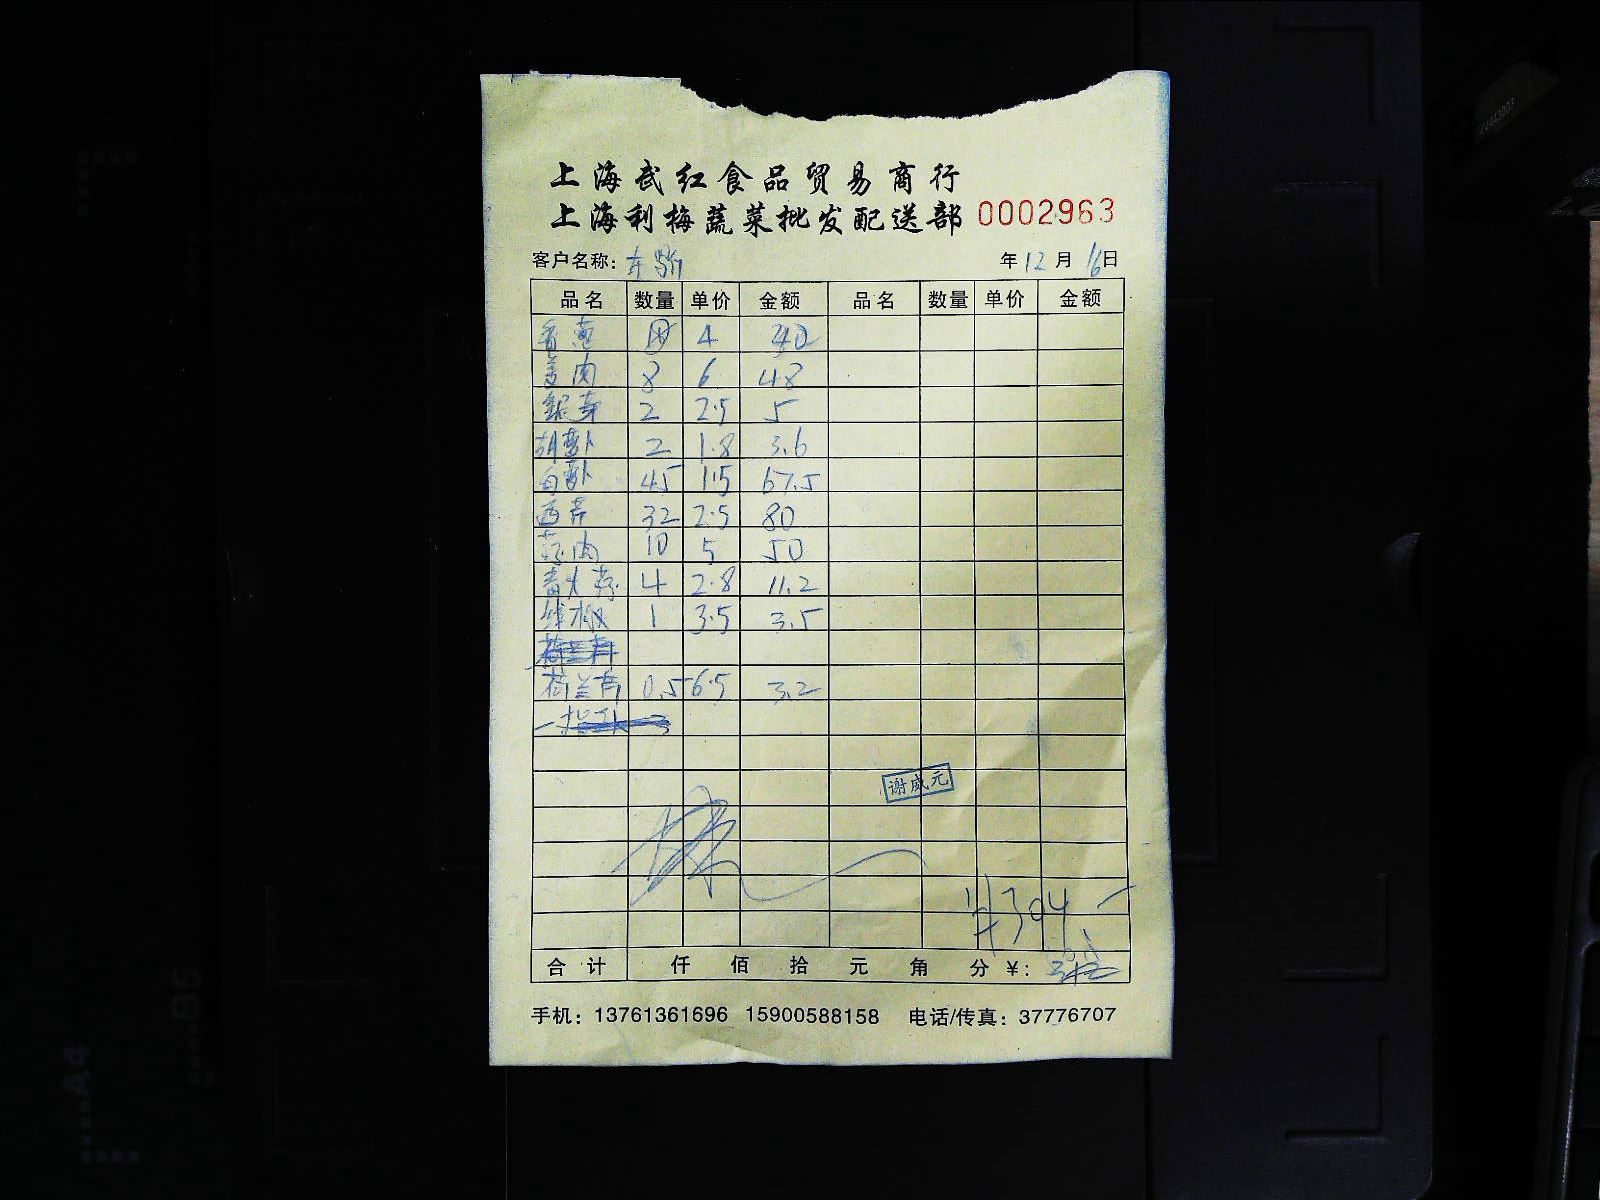 上海武红食品贸易商行
上海利梅蔬菜批发配送部 0002963
客户名称: 年12月16日
品名 数量 单价 金额 品名 数量 单价 金额
香葱 4 40
姜肉 8 6 48
银芽 2 2.5 5
胡萝卜 2 1.8 3.6
白萝卜 45 1.5 67.5
西芹 32 2.5 80
蒜肉 10 5 50
青大蒜 4 2.8 11.2
洋椒 1 3.5 3.5
荷兰芹 0.5 6.5 3.2
谢威元
¥304
合计 仟 佰 拾 元 角 分 ¥:
手机: 13761361696 15900588158 电话/传真: 37776707